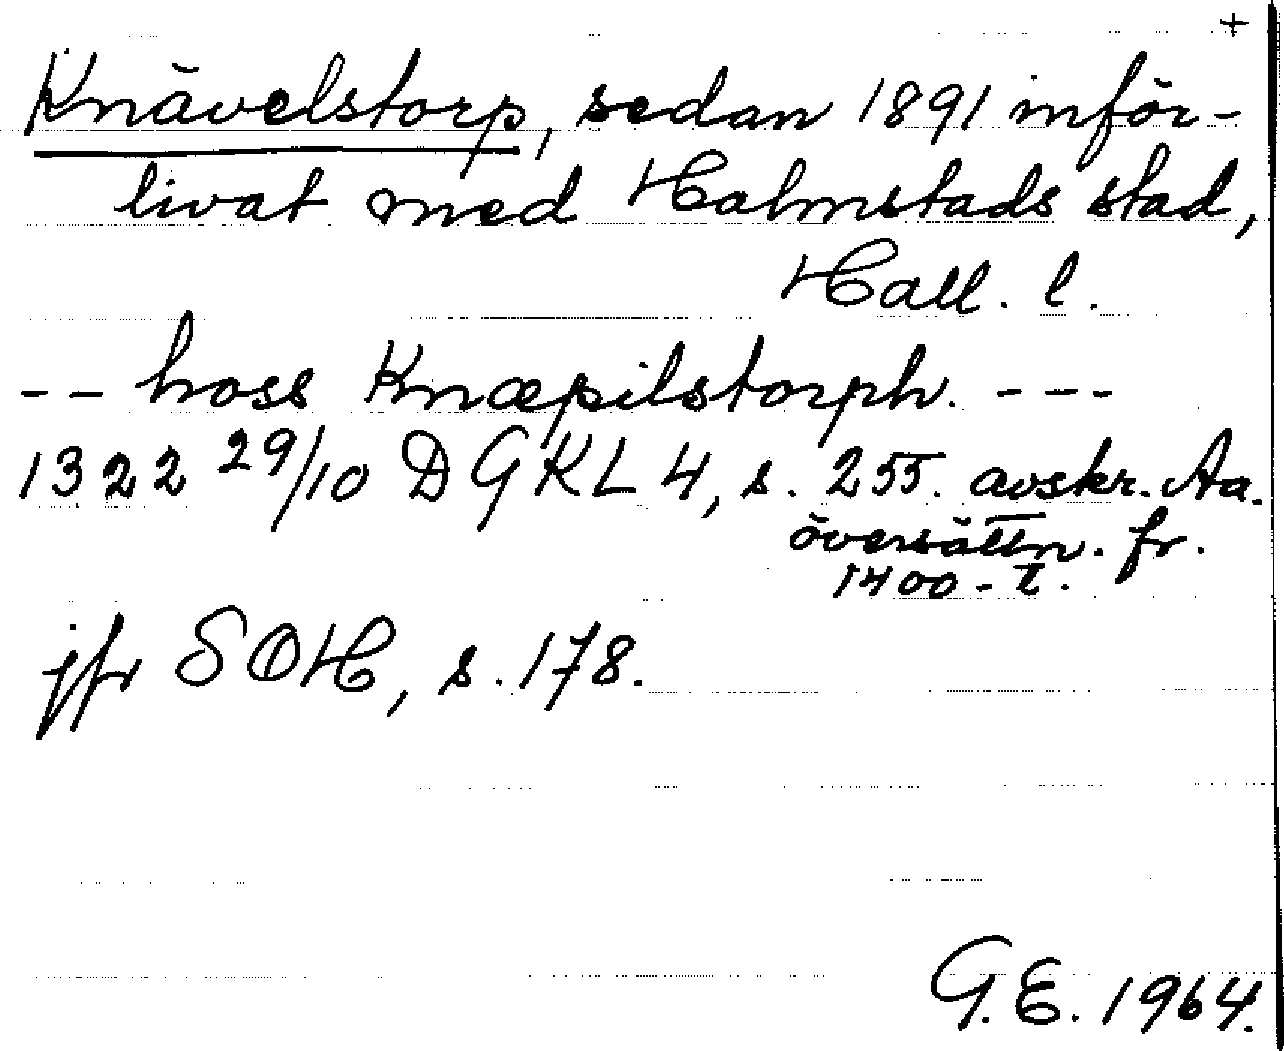 +
Knävelstorp, sedan 1891 inför-
livat med Halmstads stad,
Hall. l.
-- hoss Knæpilstorph. ---
1322 29/10 DGKL 4, s. 255. avskr. Aa.
översättn. fr.
1400-t.
jfr SOH, s. 178.
G.E. 1964.